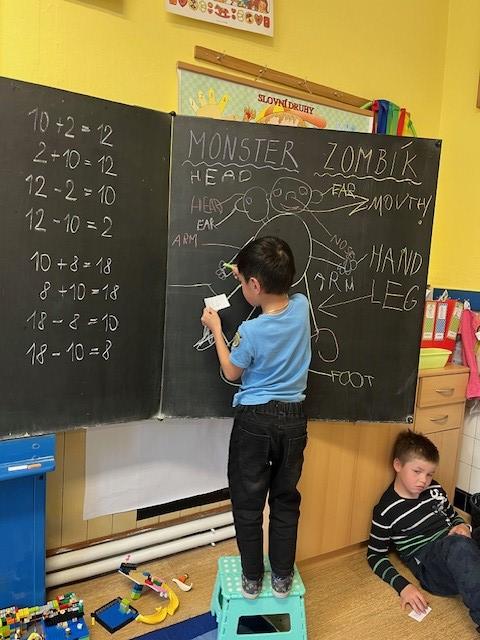 SLOVNÍ DRUHY
10 + 2 = 12
2 + 10 = 12
12 - 2 = 10
12 - 10 = 2
10 + 8 = 18
8 + 10 = 18
18 - 8 = 10
18 - 10 = 8
MONSTER
ZOMBÍK
HEAD
HEAD
EAR
ARM
EAR
MOUTH
NOSE
HAND
ARM
LEG
FOOT